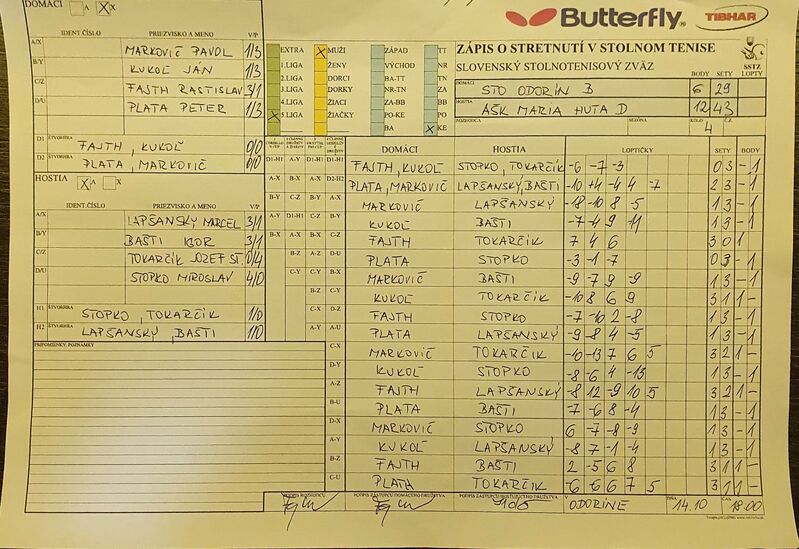 DOMÁCI A X
Butterfly TIBHAR
IDENT.ČÍSLO PRIEZVISKO A MENO V/P
A/X MARKOVIČ PAVOL 1/3
B/Y KUKOĽ JÁN 1/3
C/Z FAJTH RASTISLAV 3/1
D/U PLATA PETER 1/3
D1 ŠTVORHRA FAJTH, KUKOĽ 0/0
D2 ŠTVORHRA PLATA, MARKOVIČ 0/0
HOSTIA X A X
IDENT.ČÍSLO PRIEZVISKO A MENO V/P
A/X LAPŠANSKÝ MARCEL 3/1
B/Y BAŠTI IGOR 3/1
C/Z TOKARČÍK JOZEF ST. 0/4
D/U STOPKO MIROSLAV 4/0
H1 ŠTVORHRA STOPKO, TOKARČÍK 1/0
H2 ŠTVORHRA LAPŠANSKÝ, BAŠTI 1/0
PRIPOMIENKY, POZNÁMKY
EXTRA X MUŽI ZÁPAD TT
1.LIGA ŽENY VÝCHOD NR
2.LIGA DORCI BA-TT TN
3.LIGA DORKY NR-TN ZA
4.LIGA ŽIACI ZA-BB BB
X 5.LIGA ŽIAČKY PO-KE PO
BA X KE
ZÁPIS O STRETNUTÍ V STOLNOM TENISE
SLOVENSKÝ STOLNOTENISOVÝ ZVÄZ
SSTZ
BODY SETY LOPTY
DOMÁCI STO ODORÍN B 6 29
HOSTIA AŠK MARIA HUTA D 12 43
ROZHODCA SEZÓNA KOLO Č.Z.
4
DOMÁCI HOSTIA LOPTIČKY SETY BODY
D1-H1 A-Y D1-H1 D1-H1 FAJTH, KUKOĽ STOPKO, TOKARČÍK -6 -7 -3 0 3 - 1
A-X B-X A-X D2-H2 PLATA, MARKOVIČ LAPŠANSKÝ, BAŠTI -10 +4 -4 4 -7 2 3 - 1
B-Y C-Z B-Y A-X MARKOVIČ LAPŠANSKÝ -18 -10 8 -5 1 3 - 1
A-Y D1-H1 C-Z B-Y KUKOĽ BAŠTI -7 -4 9 -11 1 3 - 1
B-X A-X B-X C-Z FAJTH TOKARČÍK 7 4 6 3 0 1
B-Z A-Z D-U PLATA STOPKO -3 -1 -7 0 3 - 1
C-Y C-Y B-X MARKOVIČ BAŠTI -9 7 -9 -9 1 3 - 1
B-Z C-Y KUKOĽ TOKARČÍK -10 8 6 9 3 1 1 -
C-X D-Z FAJTH STOPKO -7 -10 2 -8 1 3 - 1
A-Y A-U PLATA LAPŠANSKÝ -9 -8 4 -5 1 3 - 1
C-X MARKOVIČ TOKARČÍK -10 -13 7 6 5 3 2 1 -
D-Y KUKOĽ STOPKO -8 -6 4 -13 1 3 - 1
A-Z FAJTH LAPŠANSKÝ -8 12 -9 10 5 3 2 1 -
B-U PLATA BAŠTI -7 -6 8 -4 1 3 - 1
D-X MARKOVIČ STOPKO 6 -7 -8 -9 1 3 - 1
A-Y KUKOĽ LAPŠANSKÝ -8 7 -1 -4 1 3 - 1
B-Z FAJTH BAŠTI 2 -5 6 8 3 1 1 -
C-U PLATA TOKARČÍK -6 -6 6 7 5 3 2 1 -
PODPIS ROZHODCU PODPIS ZÁSTUPCU DOMÁCEHO DRUŽSTVA PODPIS ZÁSTUPCU HOSŤUJÚCEHO DRUŽSTVA V ODORÍNE DŇA 14.10 ČAS 18:00